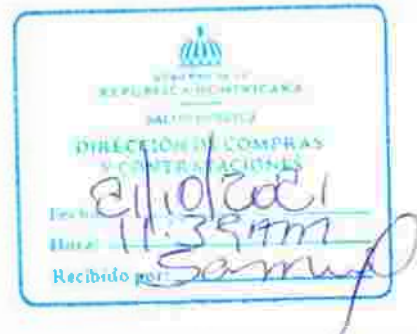 GOBIERNO DE LA
REPÚBLICA DOMINICANA
SALUD PÚBLICA
DIRECCIÓN DE COMPRAS
Y CONTRATACIONES
Fecha: 21/10/2021
Hora: 11:39AM
Recibido por: Samuel